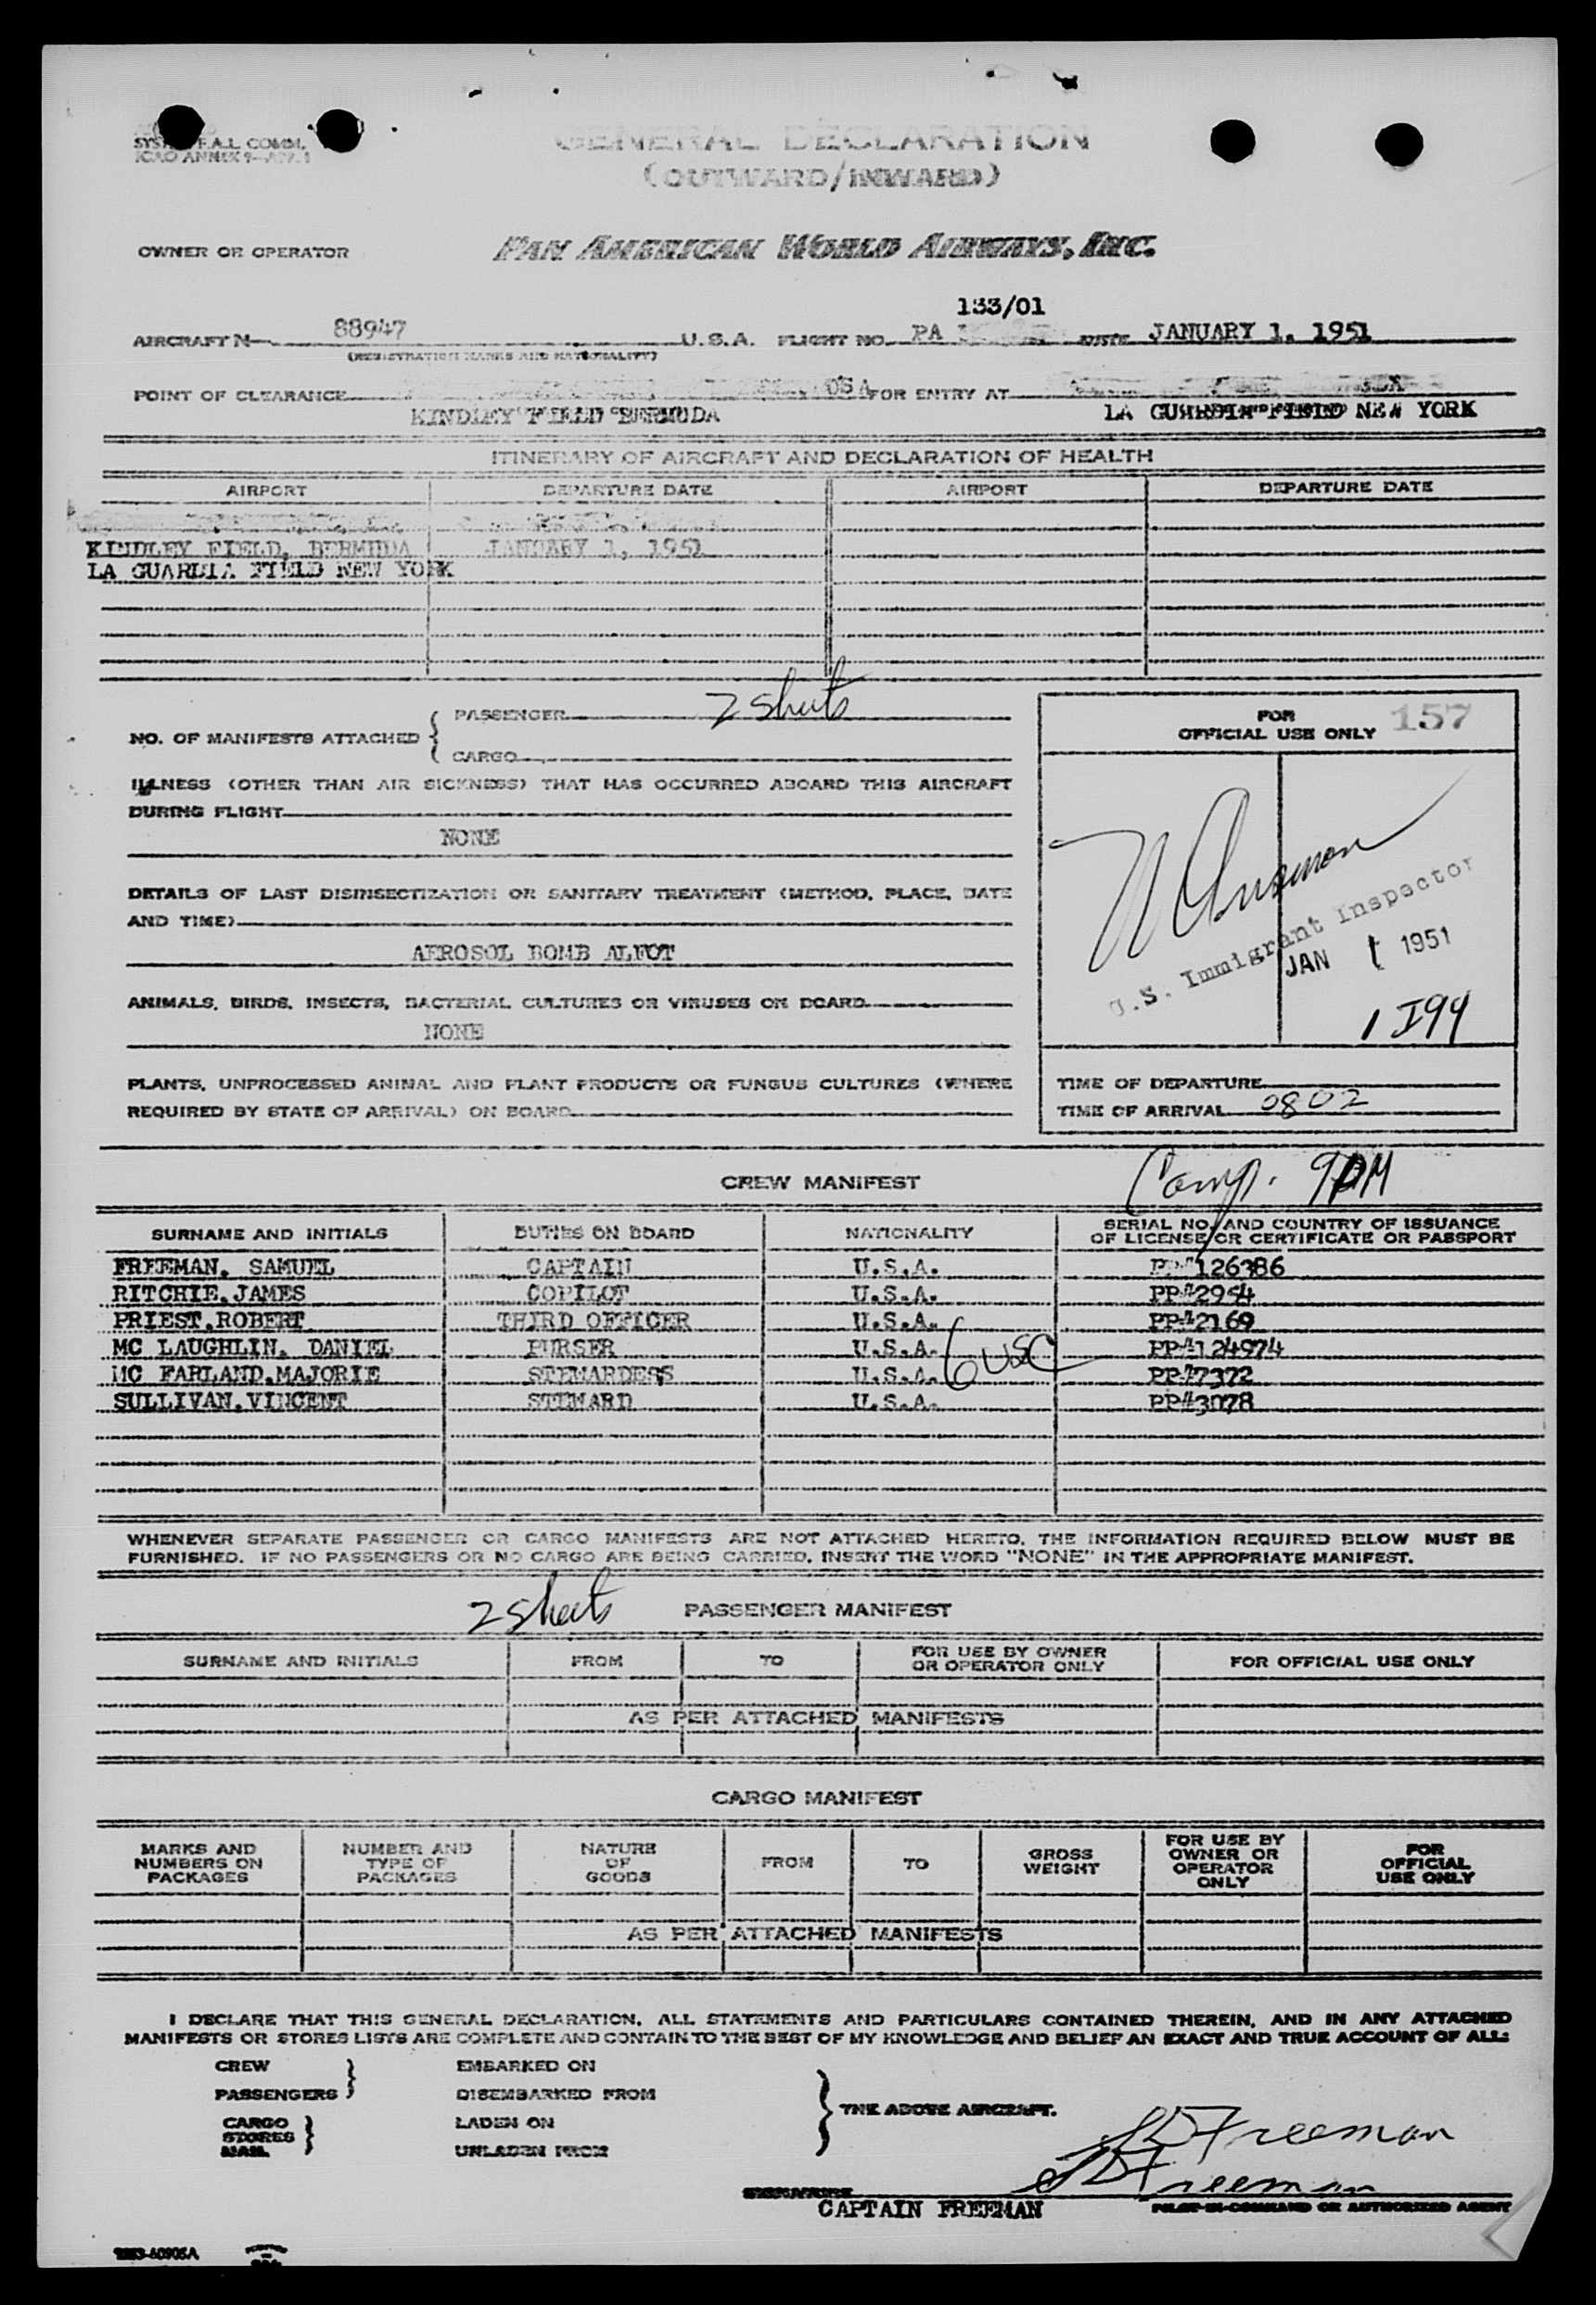 SYST F.A.L. COMM.
ICAO ANNEX 9—APP. 1
GENERAL DECLARATION
(OUTWARD/INWARD)
OWNER OR OPERATOR PAN AMERICAN WORLD AIRWAYS, INC.
133/01
AIRCRAFT N 88947 U.S.A. FLIGHT NO. PA DATE JANUARY 1, 1951
(REGISTRATION MARKS AND NATIONALITY)
POINT OF CLEARANCE USA FOR ENTRY AT
KINDLEY FIELD BERMUDA LA GUARDIA FIELD NEW YORK
ITINERARY OF AIRCRAFT AND DECLARATION OF HEALTH
AIRPORT DEPARTURE DATE AIRPORT DEPARTURE DATE
KINDLEY FIELD, BERMUDA JANUARY 1, 1951
LA GUARDIA FIELD NEW YORK
NO. OF MANIFESTS ATTACHED { PASSENGER 2 sheets
CARGO
ILLNESS (OTHER THAN AIR SICKNESS) THAT HAS OCCURRED ABOARD THIS AIRCRAFT
DURING FLIGHT
NONE
DETAILS OF LAST DISINSECTIZATION OR SANITARY TREATMENT (METHOD, PLACE, DATE
AND TIME)
AEROSOL BOMB ALFOT
ANIMALS, BIRDS, INSECTS, BACTERIAL CULTURES OR VIRUSES ON BOARD
NONE
PLANTS, UNPROCESSED ANIMAL AND PLANT PRODUCTS OR FUNGUS CULTURES (WHERE
REQUIRED BY STATE OF ARRIVAL) ON BOARD
FOR
OFFICIAL USE ONLY 157
U.S. Immigrant Inspector
JAN 1 1951
1 I94
TIME OF DEPARTURE
TIME OF ARRIVAL 0802
CREW MANIFEST Comp. 9PM
SURNAME AND INITIALS DUTIES ON BOARD NATIONALITY SERIAL NO. AND COUNTRY OF ISSUANCE
OF LICENSE OR CERTIFICATE OR PASSPORT
FREEMAN, SAMUEL CAPTAIN U.S.A. PP#126386
RITCHIE,JAMES COPILOT U.S.A. PP#2954
PRIEST,ROBERT THIRD OFFICER U.S.A. PP#2169
MC LAUGHLIN, DANIEL PURSER U.S.A. 6 USC PP#124974
MC FARLAND,MAJORIE STEWARDESS U.S.A. PP#7372
SULLIVAN,VINCENT STEWARD U.S.A. PP#3078
WHENEVER SEPARATE PASSENGER OR CARGO MANIFESTS ARE NOT ATTACHED HERETO, THE INFORMATION REQUIRED BELOW MUST BE
FURNISHED. IF NO PASSENGERS OR NO CARGO ARE BEING CARRIED, INSERT THE WORD "NONE" IN THE APPROPRIATE MANIFEST.
2 sheets PASSENGER MANIFEST
SURNAME AND INITIALS FROM TO FOR USE BY OWNER
OR OPERATOR ONLY FOR OFFICIAL USE ONLY
AS PER ATTACHED MANIFESTS
CARGO MANIFEST
MARKS AND
NUMBERS ON
PACKAGES
NUMBER AND
TYPE OF
PACKAGES
NATURE
OF
GOODS
FROM
TO
GROSS
WEIGHT
FOR USE BY
OWNER OR
OPERATOR
ONLY
FOR
OFFICIAL
USE ONLY
AS PER ATTACHED MANIFESTS
I DECLARE THAT THIS GENERAL DECLARATION, ALL STATEMENTS AND PARTICULARS CONTAINED THEREIN, AND IN ANY ATTACHED
MANIFESTS OR STORES LISTS ARE COMPLETE AND CONTAIN TO THE BEST OF MY KNOWLEDGE AND BELIEF AN EXACT AND TRUE ACCOUNT OF ALL:
CREW EMBARKED ON
PASSENGERS } DISEMBARKED FROM
CARGO
STORES
MAIL } LADEN ON
UNLADEN FROM
} THE ABOVE AIRCRAFT.
SD Freeman
SD Freeman
SIGNATURE
CAPTAIN FREEMAN PILOT-IN-COMMAND OR AUTHORIZED AGENT